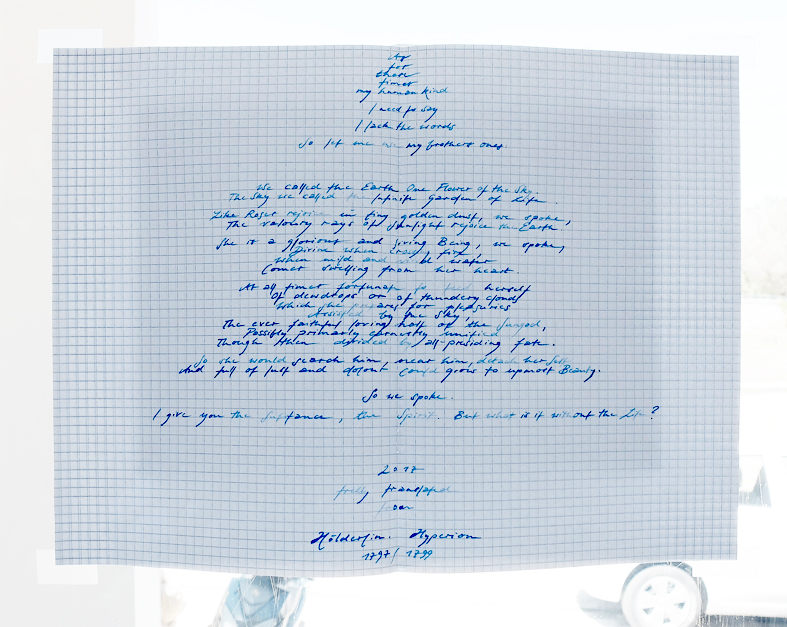 As
for
these
times
my human kind
I need to say
I lack the words
So let me use my brothers ones.
We called the Earth One Flower of the Sky.
The Sky we called the Infinite Garden of Life.
Like Roses rejoice in tiny golden dust, we spoke,
The valoury rays of Sunlight rejoice the Earth
She is a glorious and living Being, we spoke,
Divine when crazy fire,
When mild and water
Comes swelling from her heart.
At all times fortunate to feed herself
Of dewdrops or of thundery clouds
Which she prepares for pleasures
Assisted by the Sky,
The ever faithful loving half of the
Possibly primarily earnestly unified
Though then divided by all-presiding fate.
So she would search him, near him, detach herself
And full of lust and dolour could grow to upmost Beauty.
So we spoke.
I give you the Substance, the Spirit. But what is it without the Life?
2017
freely translated
from
Hölderlin. Hyperion
1797/1799